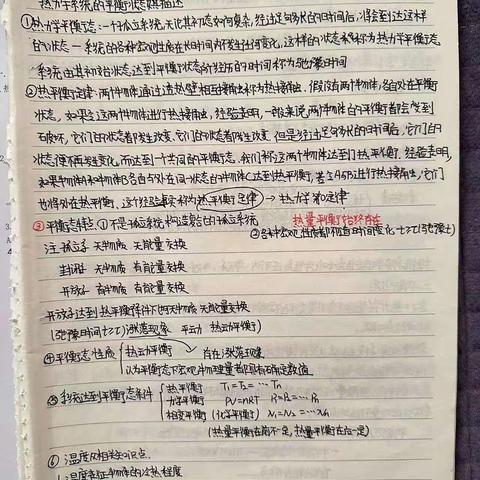 热力学系统的平衡状态及其描述
①热力学平衡态:一个孤立系统,无论其初态如何复杂,经过足够长的时间后,将会到达这样
的状态 — 系统的各种宏观性质在长时间内不发生任何变化,这样的状态称为热力学平衡态
系统由其初始状态达到平衡状态所经历的时间称为弛豫时间
②热平衡定律:两个物体通过透热壁相互接触称为热接触,假设有两个物体,各自处在平衡
状态,如果令这两个物体进行热接触,经验表明,一般来说两个物体的平衡都会受到
破坏,它们的状态都发生改变.但是经过足够长的时间后,它们的
状态便不再发生变化,而达到一个共同的平衡态,我们称这两个物体达到了热平衡.经验表明,
如果物体A和物体B各自与处在同一状态的物体C达到热平衡,若令A与B进行热接触,它们
也将处在热平衡,这个经验事实称为热平衡定律 → 热力学第零定律
③平衡态特点 ①不是孤立系 构造复合的孤立系统 热量平衡始终存在
②各种宏观性质都不随时间变化 t>τ(弛豫)
注:孤立系 无物质 无能量交换
封闭系 无物质 有能量交换
开放系 有物质 有能量交换
开放系达到热平衡条件下的无物质 无能量交换
(弛豫时间t>τ)涨落现象 热动平衡)
④平衡态性质 热动平衡 存在涨落现象
认为平衡态下宏观物理量都具有确定数值
⑤系统达到平衡态条件 热平衡 T₁=T₂=…Tₙ
力学平衡 PV=nRT P₁=P₂=…Pₙ
相变平衡 (化学平衡) N₁=N₂=…Nₙ
(热量平衡在前不一定,热量平衡在后一定)
⑥ 温度及相关知识点.
1.温度表征物体的冷热程度